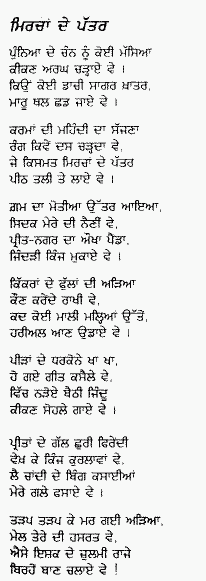 ਮਿਰਚਾਂ ਦੇ ਪੱਤਰ
ਪੁੰਨਿਆ ਦੇ ਚੰਨ ਨੂੰ ਕੋਈ ਮੱਸਿਆ
ਕੀਕਣ ਅਰਘ ਚੜ੍ਹਾਏ ਵੇ ।
ਕਿਉਂ ਕੋਈ ਡਾਚੀ ਸਾਗਰ ਖ਼ਾਤਰ,
ਮਾਰੂ ਥਲ ਛਡ ਜਾਏ ਵੇ ।
ਕਰਮਾਂ ਦੀ ਮਹਿੰਦੀ ਦਾ ਸੱਜਣਾ
ਰੰਗ ਕਿਵੇਂ ਦਸ ਚੜ੍ਹਦਾ ਵੇ,
ਜੇ ਕਿਸਮਤ ਮਿਰਚਾਂ ਦੇ ਪੱਤਰ
ਪੀਠ ਤਲੀ ਤੇ ਲਾਏ ਵੇ ।
ਗ਼ਮ ਦਾ ਮੋਤੀਆ ਉੱਤਰ ਆਇਆ,
ਸਿਦਕ ਮੇਰੇ ਦੀ ਨੈਣੀਂ ਵੇ,
ਪ੍ਰੀਤ-ਨਗਰ ਦਾ ਔਖਾ ਪੈਂਡਾ,
ਜਿੰਦੜੀ ਕਿੰਜ ਮੁਕਾਏ ਵੇ ।
ਕਿੱਕਰਾਂ ਦੇ ਫੁੱਲਾਂ ਦੀ ਅੜਿਆ
ਕੌਣ ਕਰੇਂਦੇ ਰਾਖੀ ਵੇ,
ਕਦ ਕੋਈ ਮਾਲੀ ਮਲ੍ਹਿਆਂ ਉੱਤੋਂ,
ਹਰੀਅਲ ਆਣ ਉਡਾਏ ਵੇ ।
ਪੀੜਾਂ ਦੇ ਧਰਕੋਨੇ ਖਾ ਖਾ,
ਹੋ ਗਏ ਗੀਤ ਕਸੈਲੇ ਵੇ,
ਵਿੱਚ ਨੜੋਏ ਬੈਠੀ ਜਿੰਦੂ
ਕੀਕਣ ਸੋਹਲੇ ਗਾਏ ਵੇ ।
ਪ੍ਰੀਤਾਂ ਦੇ ਗੱਲ ਛੁਰੀ ਫਿਰੇਂਦੀ
ਵੇਖ ਕੇ ਕਿੰਜ ਕੁਰਲਾਵਾਂ ਵੇ,
ਲੈ ਚਾਂਦੀ ਦੇ ਬਿੰਗ ਕਸਾਈਆਂ
ਮੇਰੇ ਗਲੇ ਫਸਾਏ ਵੇ ।
ਤੜਪ ਤੜਪ ਕੇ ਮਰ ਗਈ ਅੜਿਆ,
ਮੇਲ ਤੇਰੇ ਦੀ ਹਸਰਤ ਵੇ,
ਐਸੇ ਇਸ਼ਕ ਦੇ ਜ਼ੁਲਮੀ ਰਾਜੇ
ਬਿਰਹੋਂ ਬਾਣ ਚਲਾਏ ਵੇ !